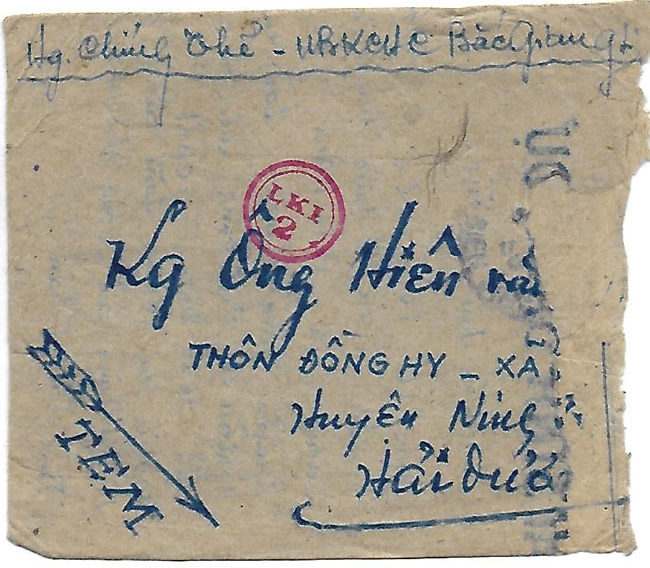 Hg. Chính - UBKCHC Bắc Giang
LKI
2
Kg Ông Hiên
THÔN ĐỒNG HY _ XA
Huyện Ninh
Hải Dươ
TEM